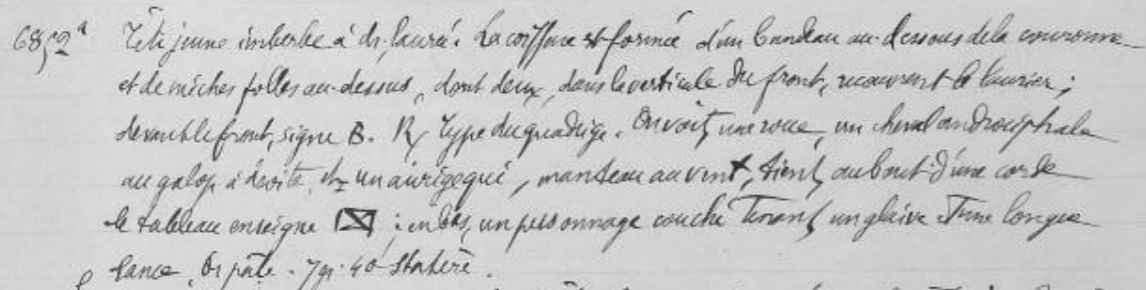 6852ᵃ Tête jeune imberbe à dr. laurée. La coiffure est formée d'un bandeau au-dessous de la couronne
et de mèches folles au-dessus, dont deux, dans la verticale du front, recouvrent le laurier ;
devant le front, signe B. R/ Type du quadrige. On voit, une roue, un cheval androcéphale
au galop à droite, et un aurige qui, manteau au vent, tient, au bout d'une corde
le tableau enseigne ; en bas, un personnage couché tenant un glaive et une longue
lance. Or pâle. 7gr.40 Statère.